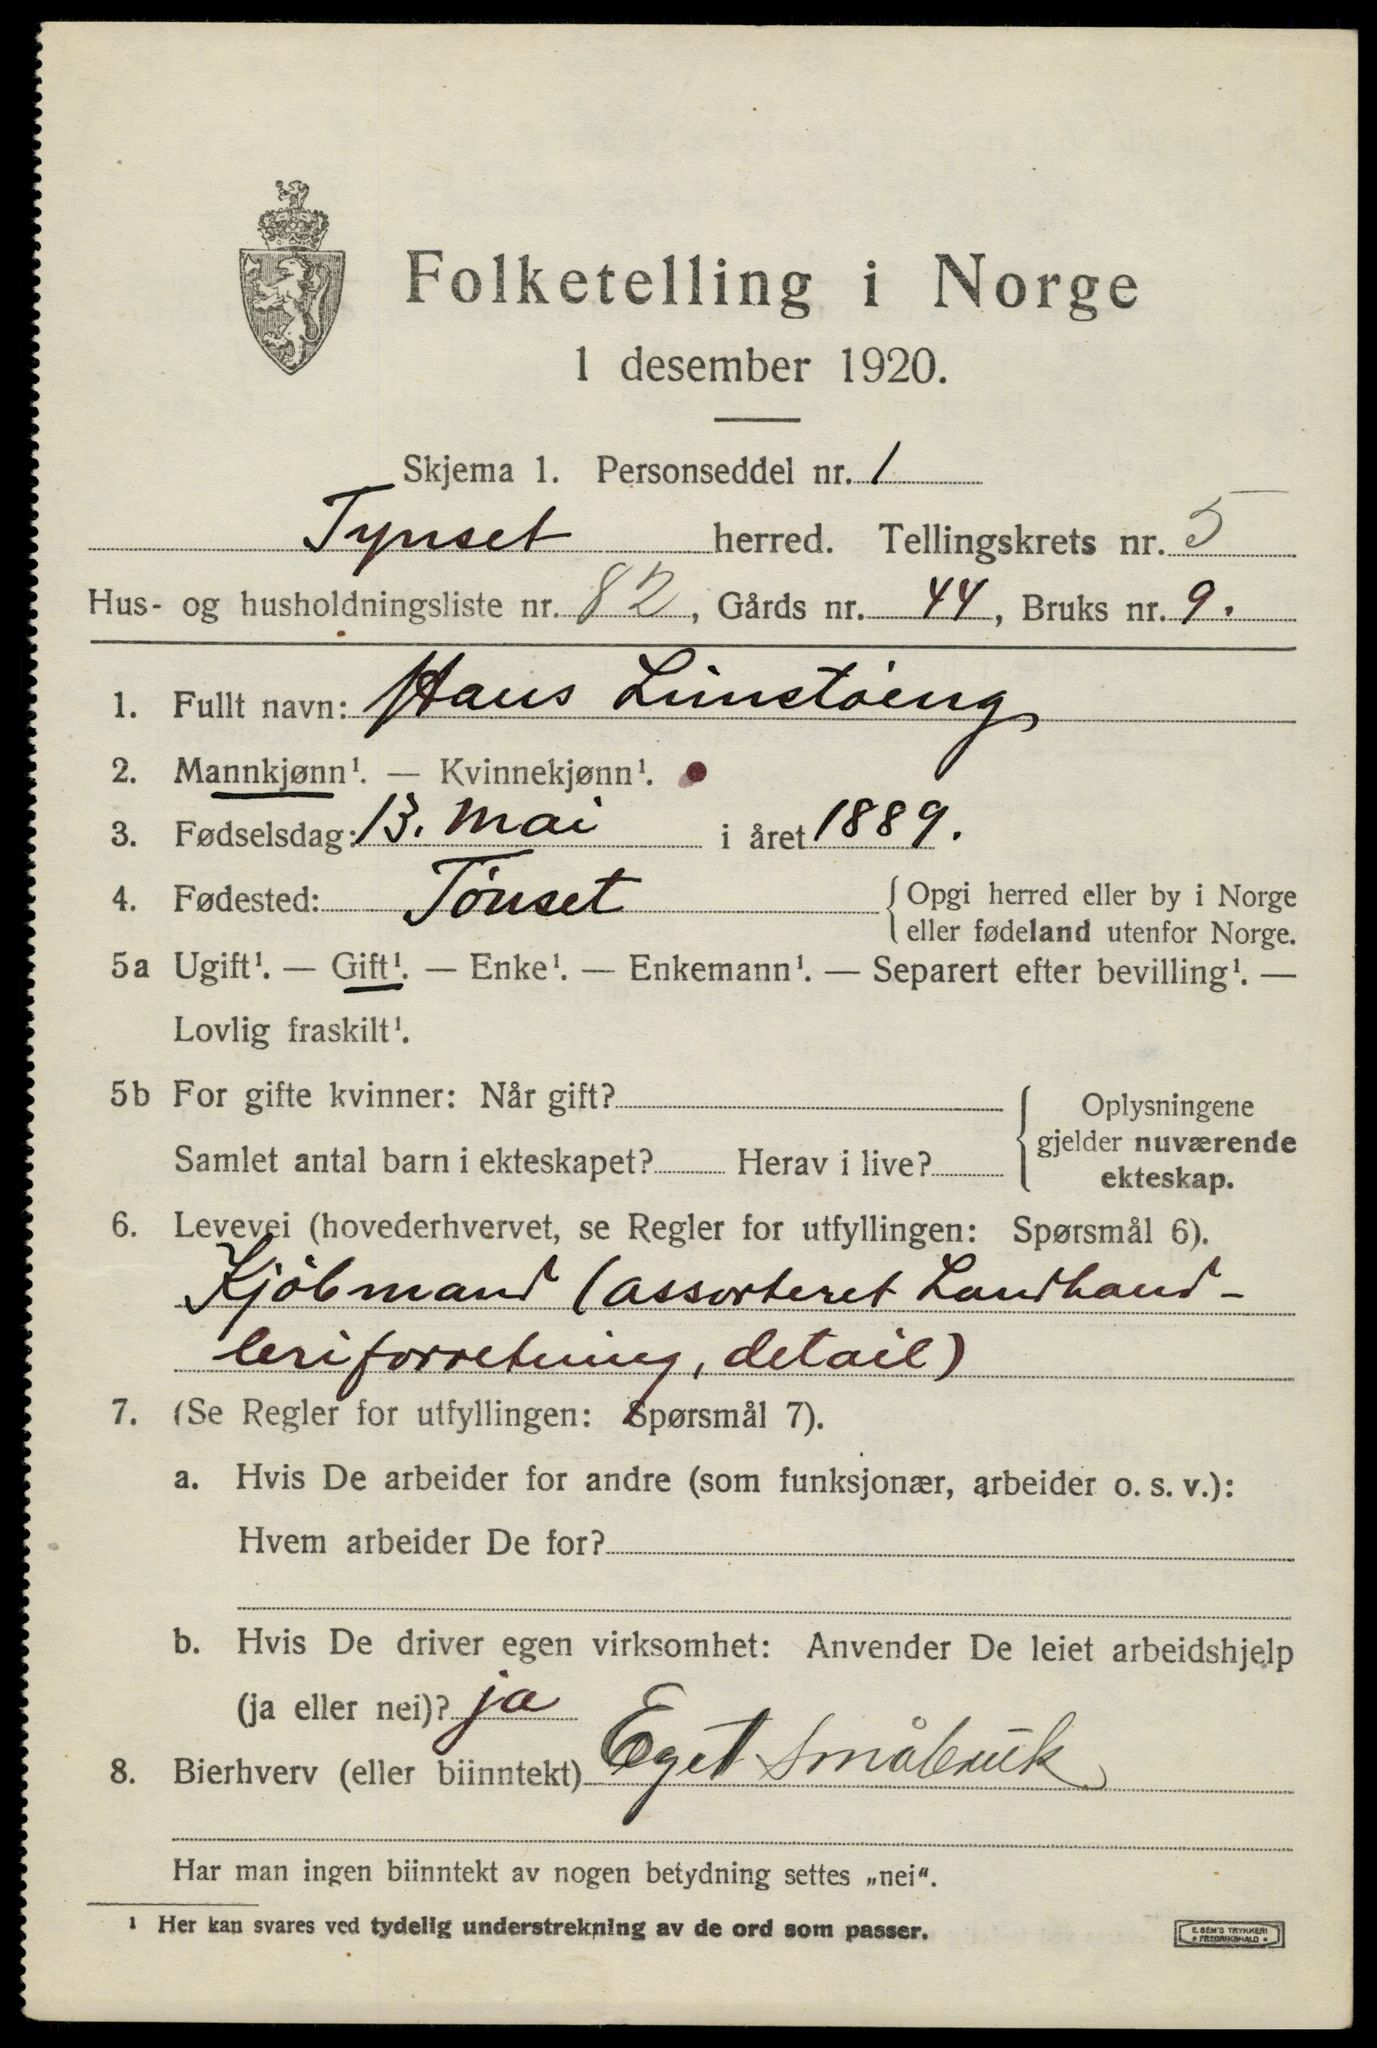 Folketelling i Norge
1 desember 1920.
Skjema 1. Personseddel nr. 1
Tynset herred. Tellingskrets nr. 5
Hus- og husholdningsliste nr. 82, Gårds nr. 44, Bruks nr. 9.
1. Fullt navn: Hans Limstøeng
2. Mannkjønn¹. — Kvinnekjønn¹.
3. Fødselsdag: 13. mai i året 1889.
4. Fødested: Tönset { Opgi herred eller by i Norge
eller fødeland utenfor Norge.
5a Ugift¹. — Gift¹. — Enke¹. — Enkemann¹. — Separert efter bevilling¹. —
Lovlig fraskilt¹.
5b For gifte kvinner: Når gift?
Samlet antal barn i ekteskapet? Herav i live?
{ Oplysningene
gjelder nuværende
ekteskap.
6. Levevei (hovederhvervet, se Regler for utfyllingen: Spørsmål 6).
Kjöbmand (assorteret Landhand-
leriforretning, detail)
7. (Se Regler for utfyllingen: Spørsmål 7).
a. Hvis De arbeider for andre (som funksjonær, arbeider o. s. v.):
Hvem arbeider De for?
b. Hvis De driver egen virksomhet: Anvender De leiet arbeidshjelp
(ja eller nei)? ja
8. Bierhverv (eller biinntekt) Eget småbruk
Har man ingen biinntekt av nogen betydning settes „nei“.
1 Her kan svares ved tydelig understrekning av de ord som passer.
E. SEM'S TRYKKERI
FREDRIKSHALD